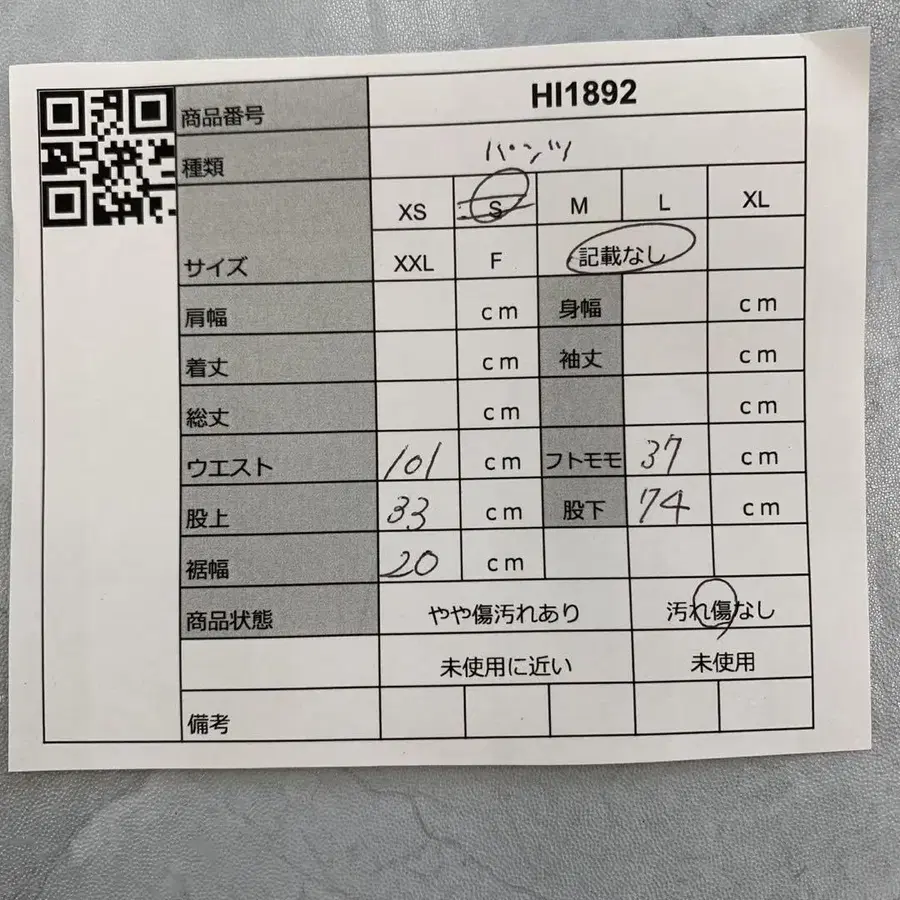 商品番号 HI1892
種類 パンツ
XS S M L XL
サイズ XXL F 記載なし
肩幅 cm 身幅 cm
着丈 cm 袖丈 cm
総丈 cm cm
ウエスト 101 cm フトモモ 37 cm
股上 33 cm 股下 74 cm
裾幅 20 cm
商品状態 やや傷汚れあり 汚れ傷なし
未使用に近い 未使用
備考